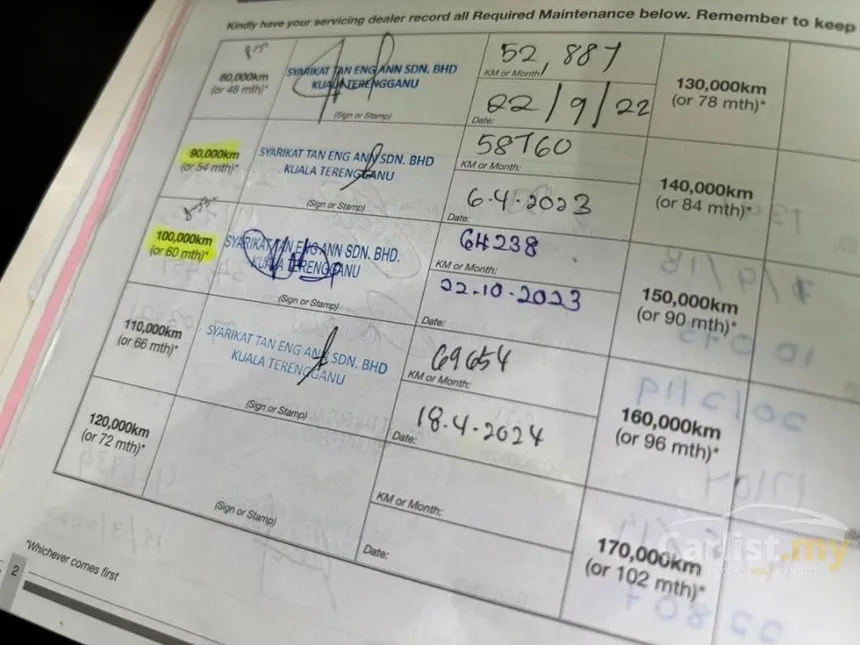 Kindly have your servicing dealer record all Required Maintenance below. Remember to keep
80,000km
(or 48 mth)*
SYARIKAT TAN ENG ANN SDN. BHD
KUALA TERENGGANU
(Sign or Stamp)
52,887
KM or Month:
22/9/22
Date:
90,000km
(or 54 mth)*
SYARIKAT TAN ENG ANN SDN. BHD
KUALA TERENGGANU
(Sign or Stamp)
58760
KM or Month:
6.4.2023
Date:
100,000km
(or 60 mth)*
SYARIKAT TAN ENG ANN SDN. BHD.
KUALA TERENGGANU
(Sign or Stamp)
64238
KM or Month:
22.10.2023
Date:
110,000km
(or 66 mth)*
SYARIKAT TAN ENG ANN SDN. BHD
KUALA TERENGGANU
(Sign or Stamp)
69654
KM or Month:
18.4.2024
Date:
120,000km
(or 72 mth)*
(Sign or Stamp)
KM or Month:
Date:
130,000km
(or 78 mth)*
140,000km
(or 84 mth)*
150,000km
(or 90 mth)*
160,000km
(or 96 mth)*
170,000km
(or 102 mth)*
*Whichever comes first
2
Carlist.my